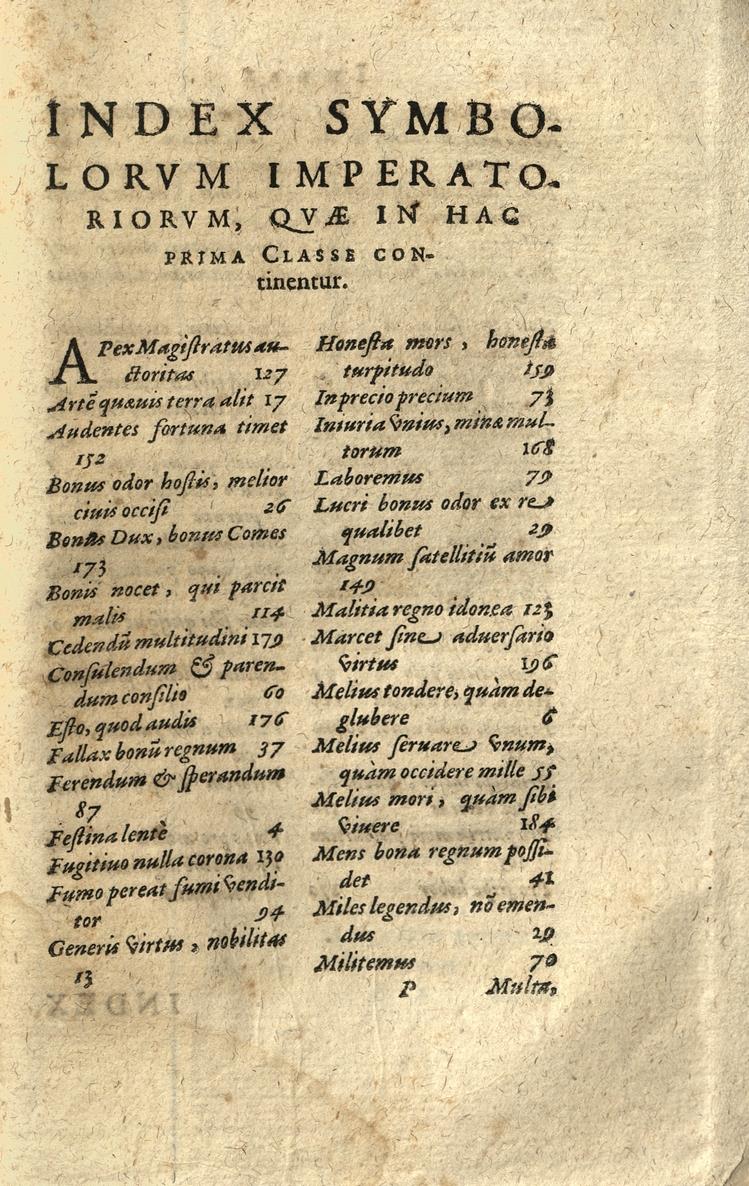 INDEX SYMBO-
LORVM IMPERATO-
RIORVM, QVÆ IN HAC
PRIMA CLASSE CON-
tinentur.
APex Magistratus au-
ctoritas 127
Artē quæuis terra alit 17
Audentes fortuna timet
152
Bonus odor hostis, melior
ciuis occisi 26
Bonus Dux, bonus Comes
173
Bonis nocet, qui parcit
malis 114
Cedendū multitudini 179
Consulendum & paren-
dum consilio 60
Esto, quod audis 176
Fallax bonū regnum 37
Ferendum & sperandum
87
Festina lentè 4
Fugitiuo nulla corona 130
Fumo pereat fumi vendi-
tor 94
Generis virtus, nobilitas
13
Honesta mors, honesta
turpitudo 159
In precio precium 73
Iniuria vnius, minæ mul-
torum 168
Laboremus 79
Lucri bonus odor ex re
qualibet 29
Magnum satellitiū amor
149
Malitia regno idonea 123
Marcet sine aduersario
virtus 196
Melius tondere, quàm de-
glubere 6
Melius seruare vnum,
quàm occidere mille 55
Melius mori, quàm sibi
viuere 184
Mens bona regnum possi-
det 41
Miles legendus, nō emen-
dus 29
Militemus 70
P Multa,